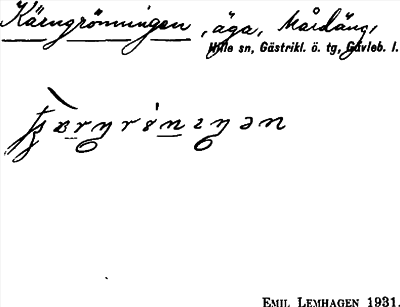 Kärngrönningen, äga, Mårdäng,
Hille sn, Gästrikl. ö. tg, Gävleb. l.
EMIL LEMHAGEN 1931.